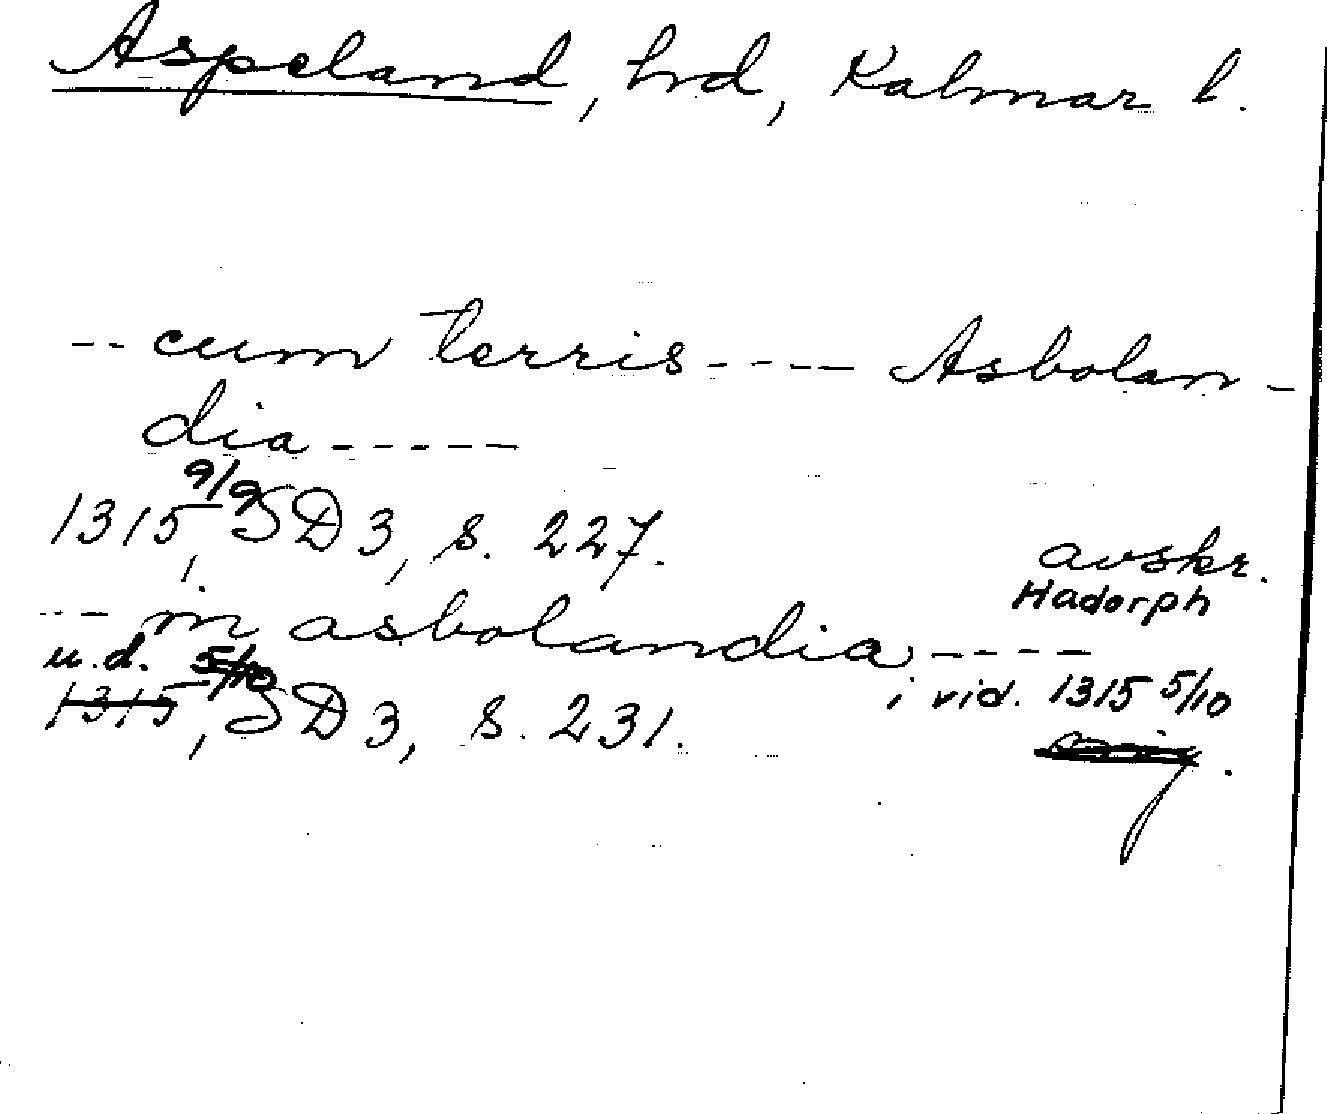 Aspeland, hrd, Kalmar l.
-- cum terris ---- Asbolan-
dia -----
1315 9/9, SD 3, s. 227.
avskr.
Hadorph
--- in asbolandia ----
u.d. 5/10
1315, SD 3, s. 231.
i vid. 1315 5/10
orig.